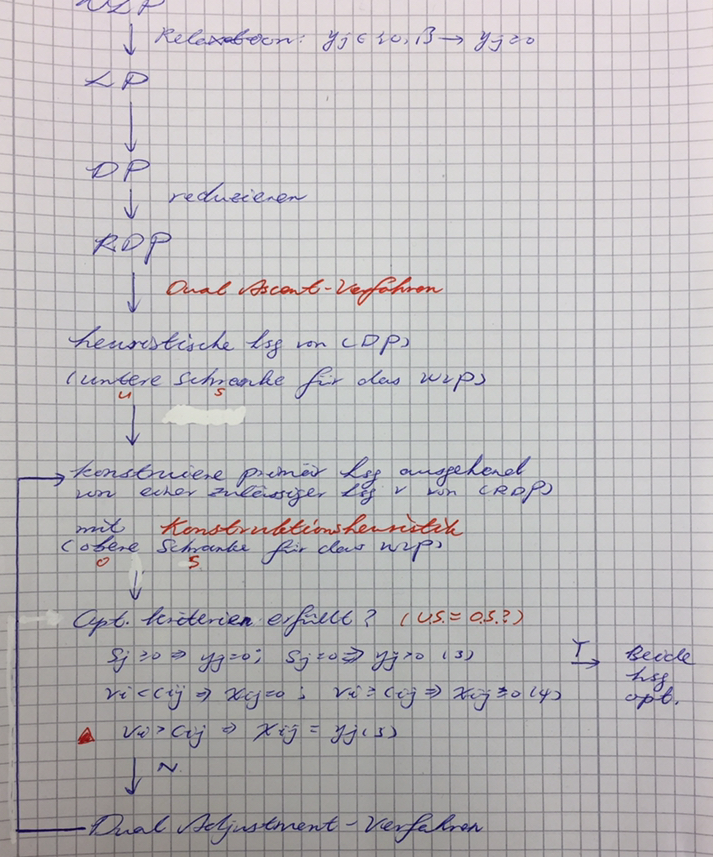 WLP
Relaxation: yj ∈ {0,1} → yj ≥ 0
LP
DP
reduzieren
RDP
Dual Ascent-Verfahren
heuristische Lsg von (DP)
(untere Schranke für das WLP)
u s
konstruiere primär Lsg ausgehend
von einer zulässiger Lsg v von (RDP)
mit Konstruktionsheuristik
(obere Schranke für das WLP)
o s
Opt. kriterien erfüllt? (U.S. = O.S.?)
Sj > 0 ⇒ yj = 0; Sj = 0 ⇒ yj > 0 (3)
vi < cij ⇒ xij = 0; vi ≥ cij ⇒ xij ≥ 0 (4)
vi > cij ⇒ xij = yj (5)
Beide
Lsg
opt.
N
Dual Adjustment-Verfahren